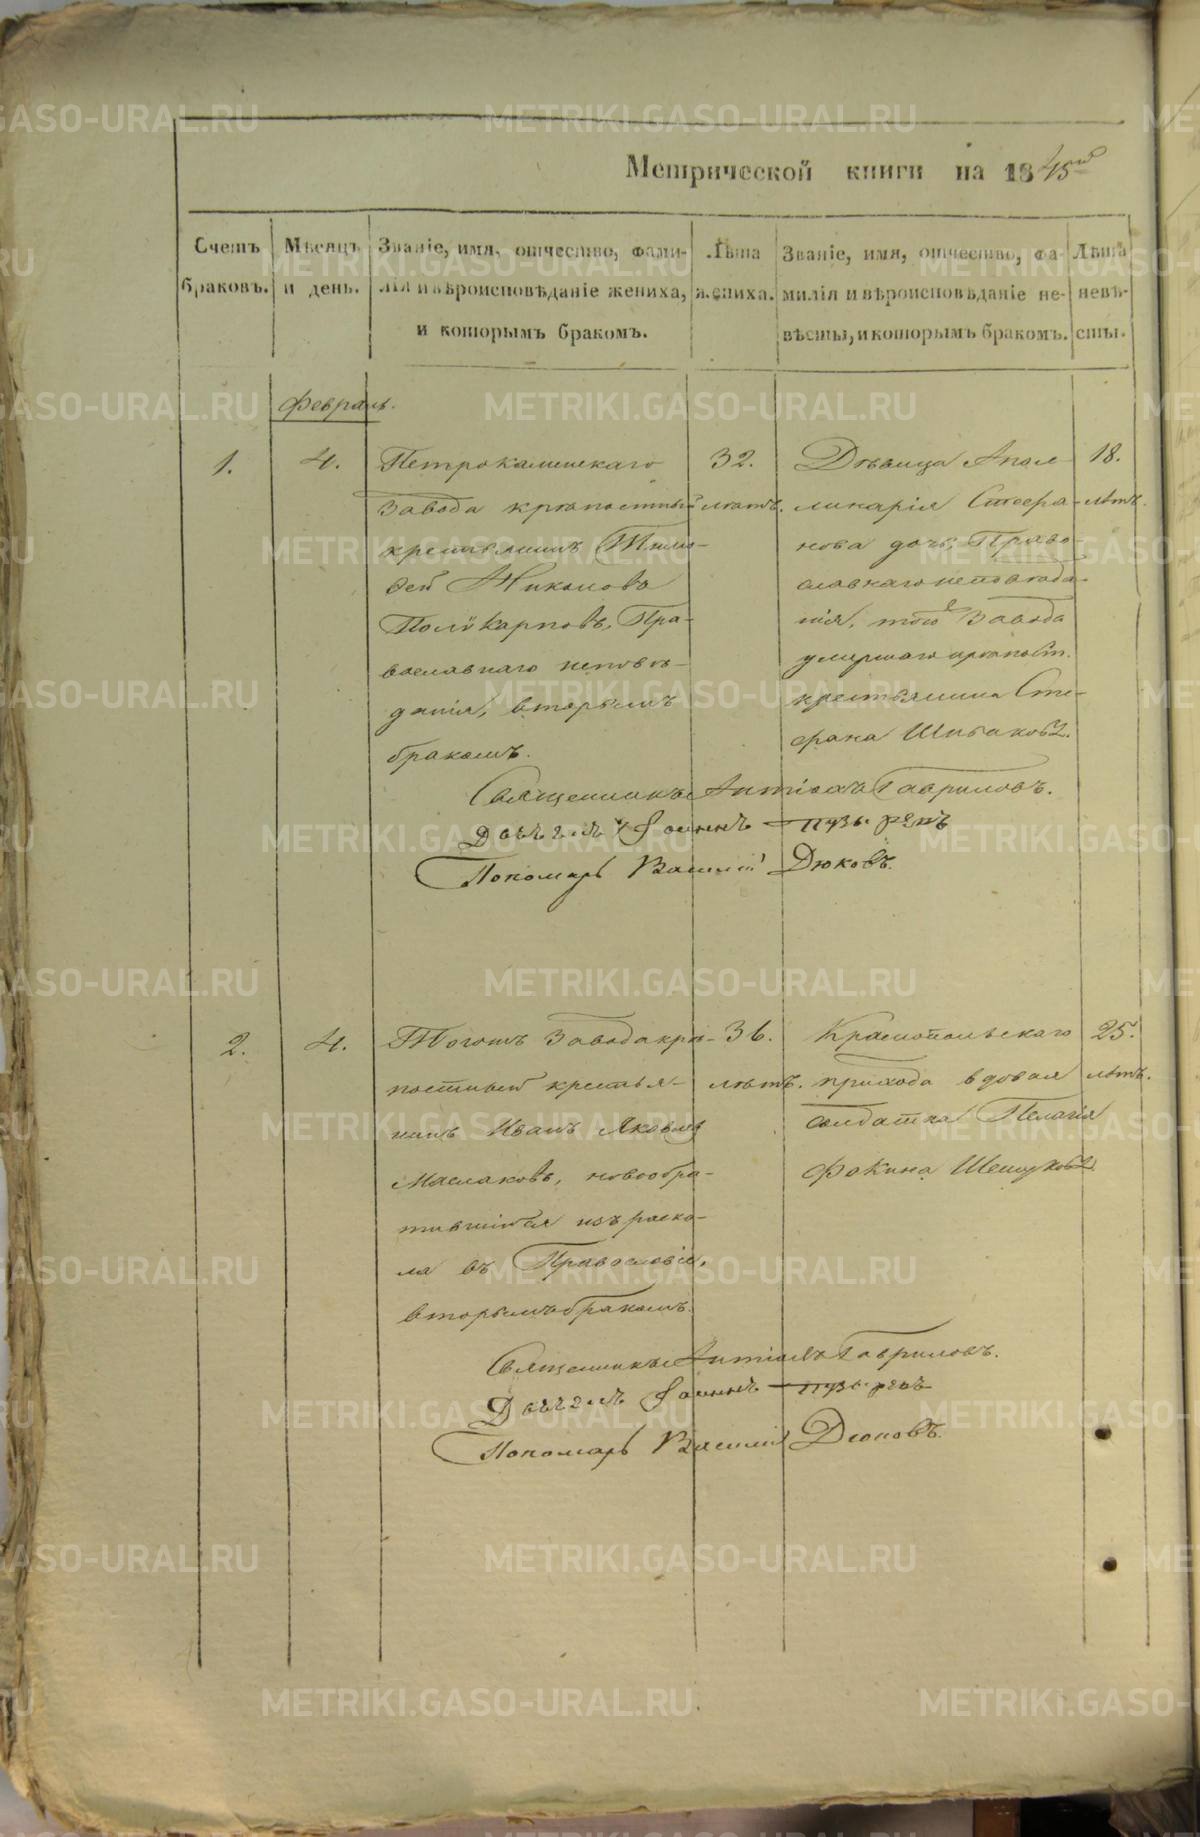 Метрической книги на 1845й
Счетъ браковъ.
Мѣсяцъ и день.
Званіе, имя, отчество, фами-
лія и вѣроисповѣданіе жениха,
и которымъ бракомъ.
Лѣта
жениха.
Званіе, имя, отчество, фа-
милія и вѣроисповѣданіе не-
вѣсты, и которымъ бракомъ.
Лѣта
невѣ-
сты.
Февраль.
1.
4.
Петрокаменскаго
завода крѣпостный
крестьянинъ Тимо-
фей Николовъ
Поликарповъ, Пра-
вославнаго исповѣ-
данія, вторымъ
бракомъ.
32.
лѣтъ.
Дѣвица Апол-
линарія Стефа-
нова дочь, Право-
славнаго исповѣда-
нія, того завода
умершаго крѣпост.
крестьянина Сте-
фана
18.
лѣтъ.
Священникъ Гавриловъ.
Іоаннъ
Пономарь Василій Дюковъ.
2.
4.
Тогожъ завода крѣ-
постный крестья-
нинъ Иванъ Яковлевъ
Маслаковъ, новообра-
тившійся изъ раско-
ла въ Православіе,
вторымъ бракомъ.
36.
лѣтъ.
Краснопольскаго
прихода вдовая
солдатка Пелагія
Фокина
25.
лѣтъ.
Священникъ Гавриловъ.
Іоаннъ
Пономарь Василій Дюковъ.
METRIKI.GASO-URAL.RU